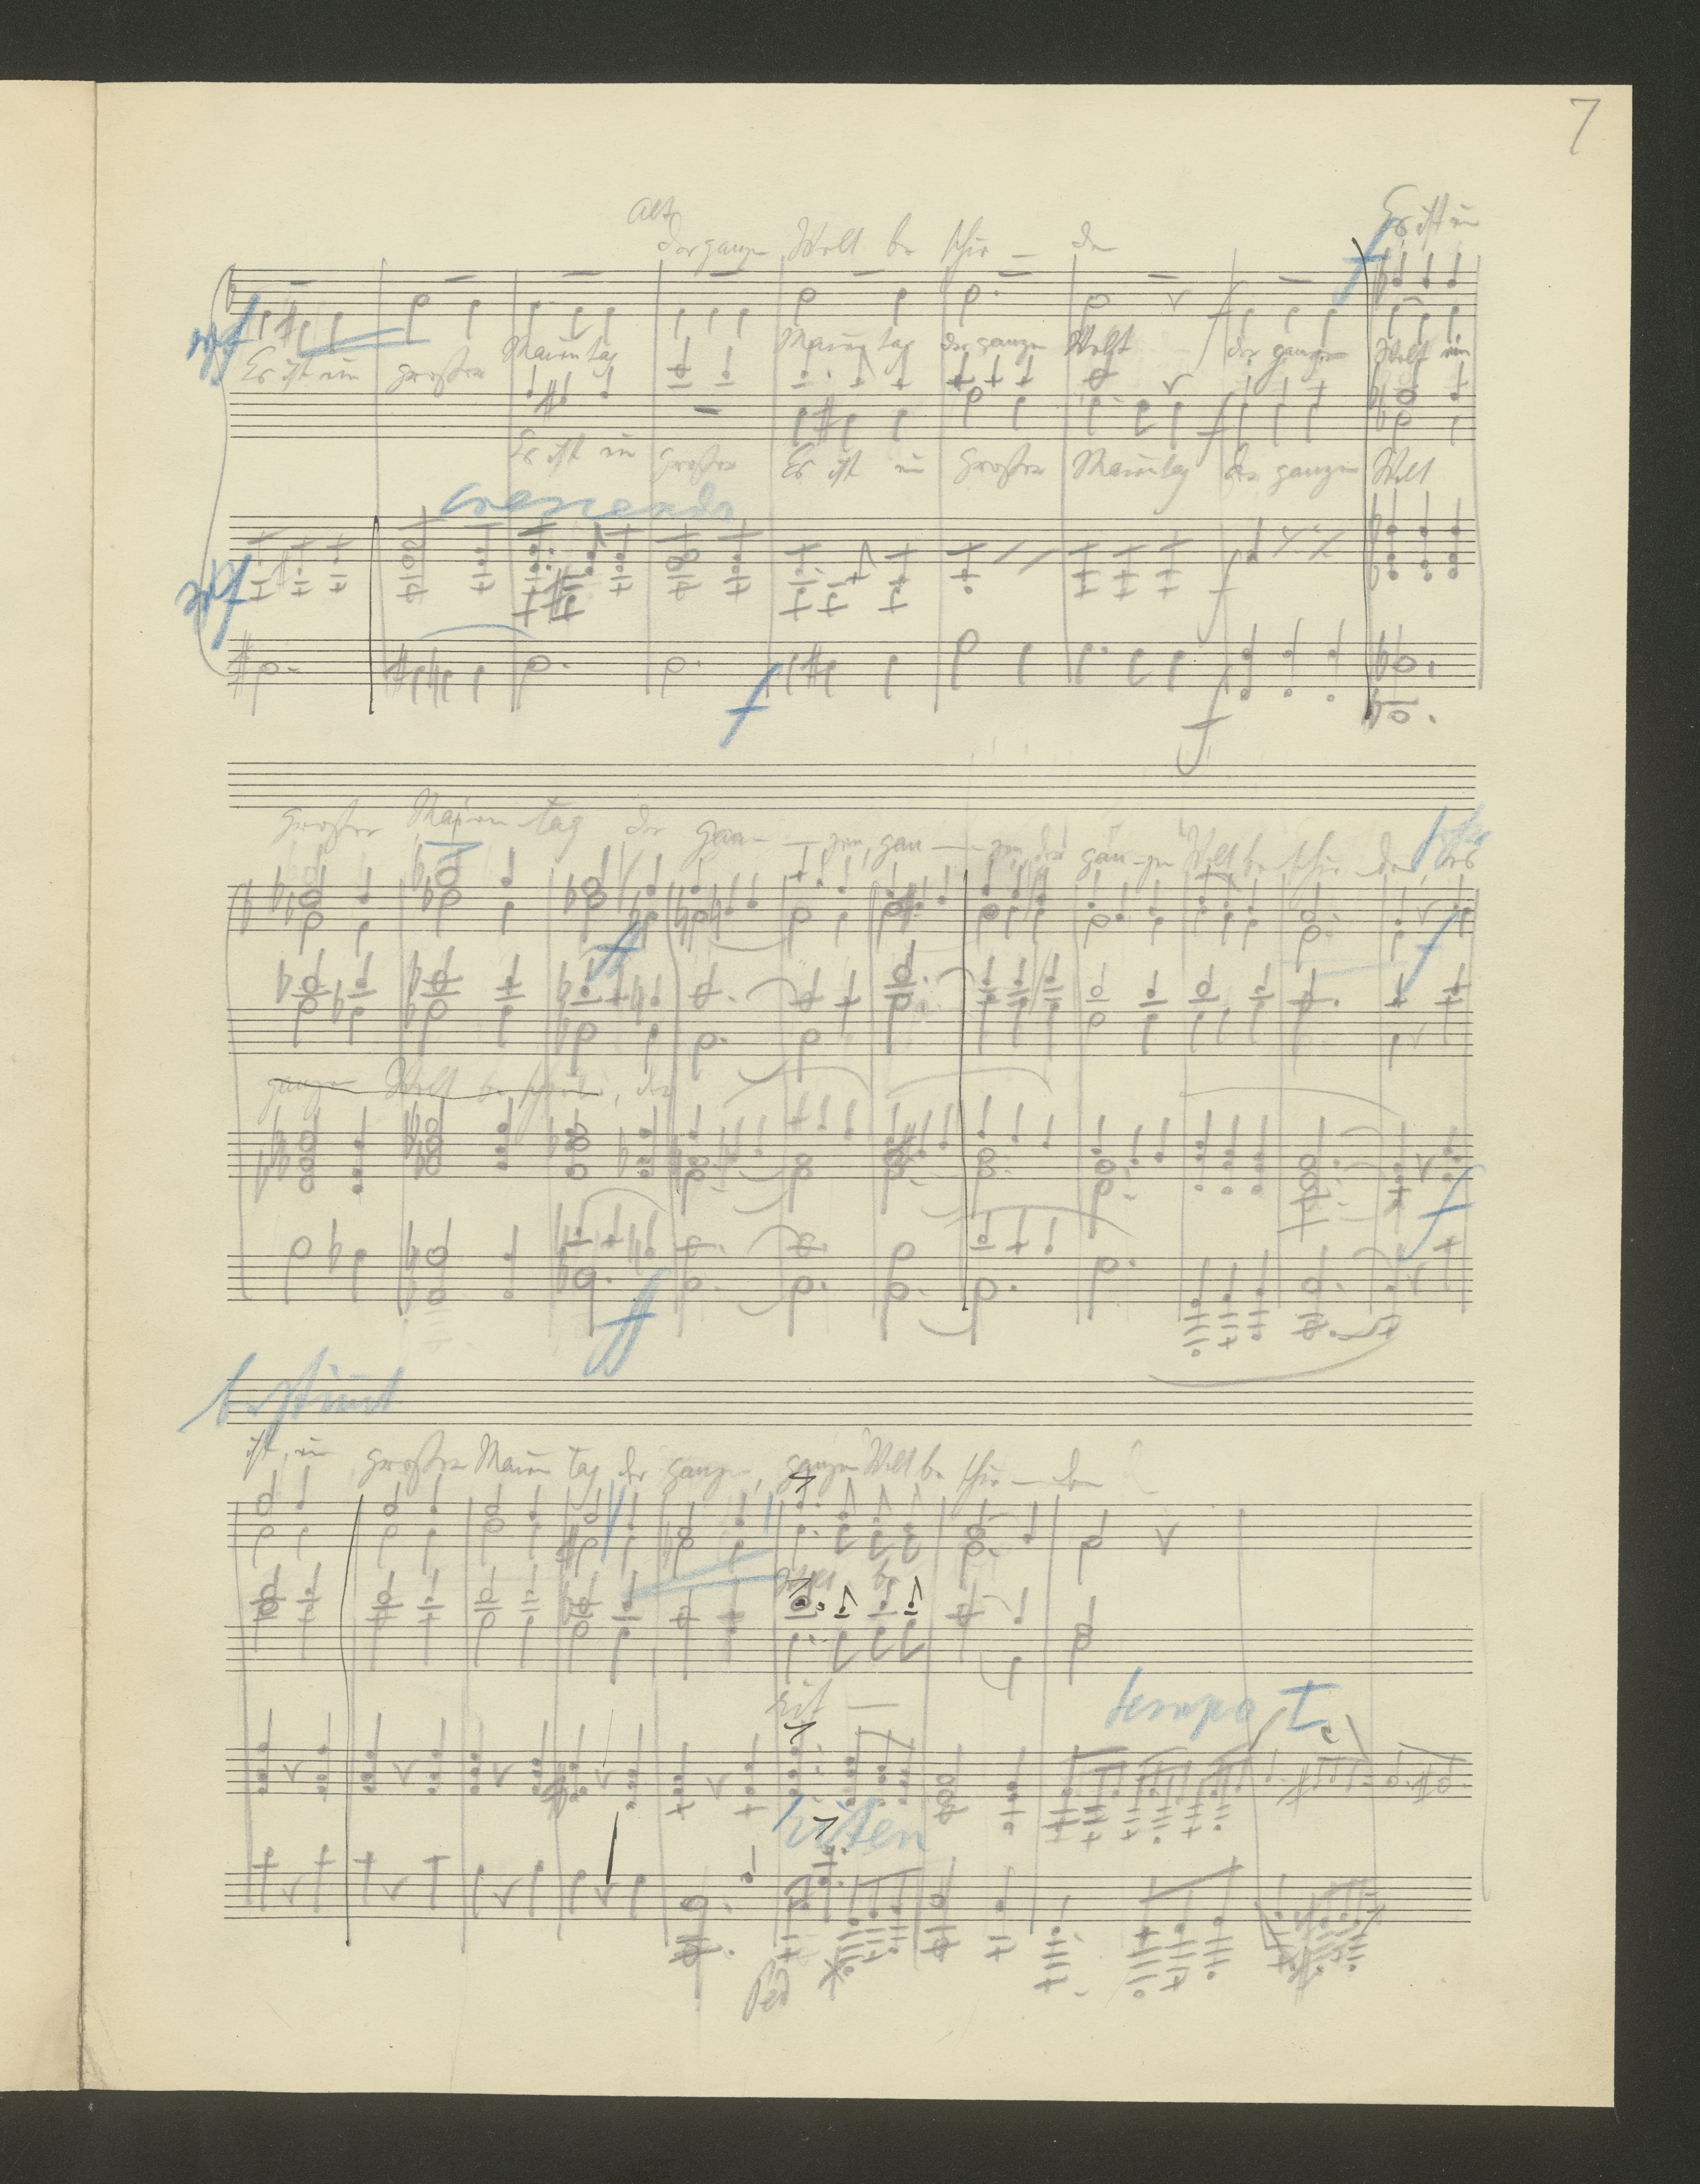 7
Alt
Es ist ein
der ganzen Welt be schie - den
f
mf
Es ist ein großer Maien tag Maien tag der ganzen Welt der ganzen Welt ein
f
Es ist ein großer Es ist ein großer Maientag der ganzen Welt
crescendo
mf
f
f
f
großer Maien - tag der gan - zen, gan - zen, der gan - zen Welt be schie den, es
ff
f
ganzen Welt be schieden, der
f
ff
bestimmt
ist ein großer Maien tag der ganzen, ganzen Welt be schie - den
be
rit
tempo I
riten
Ped